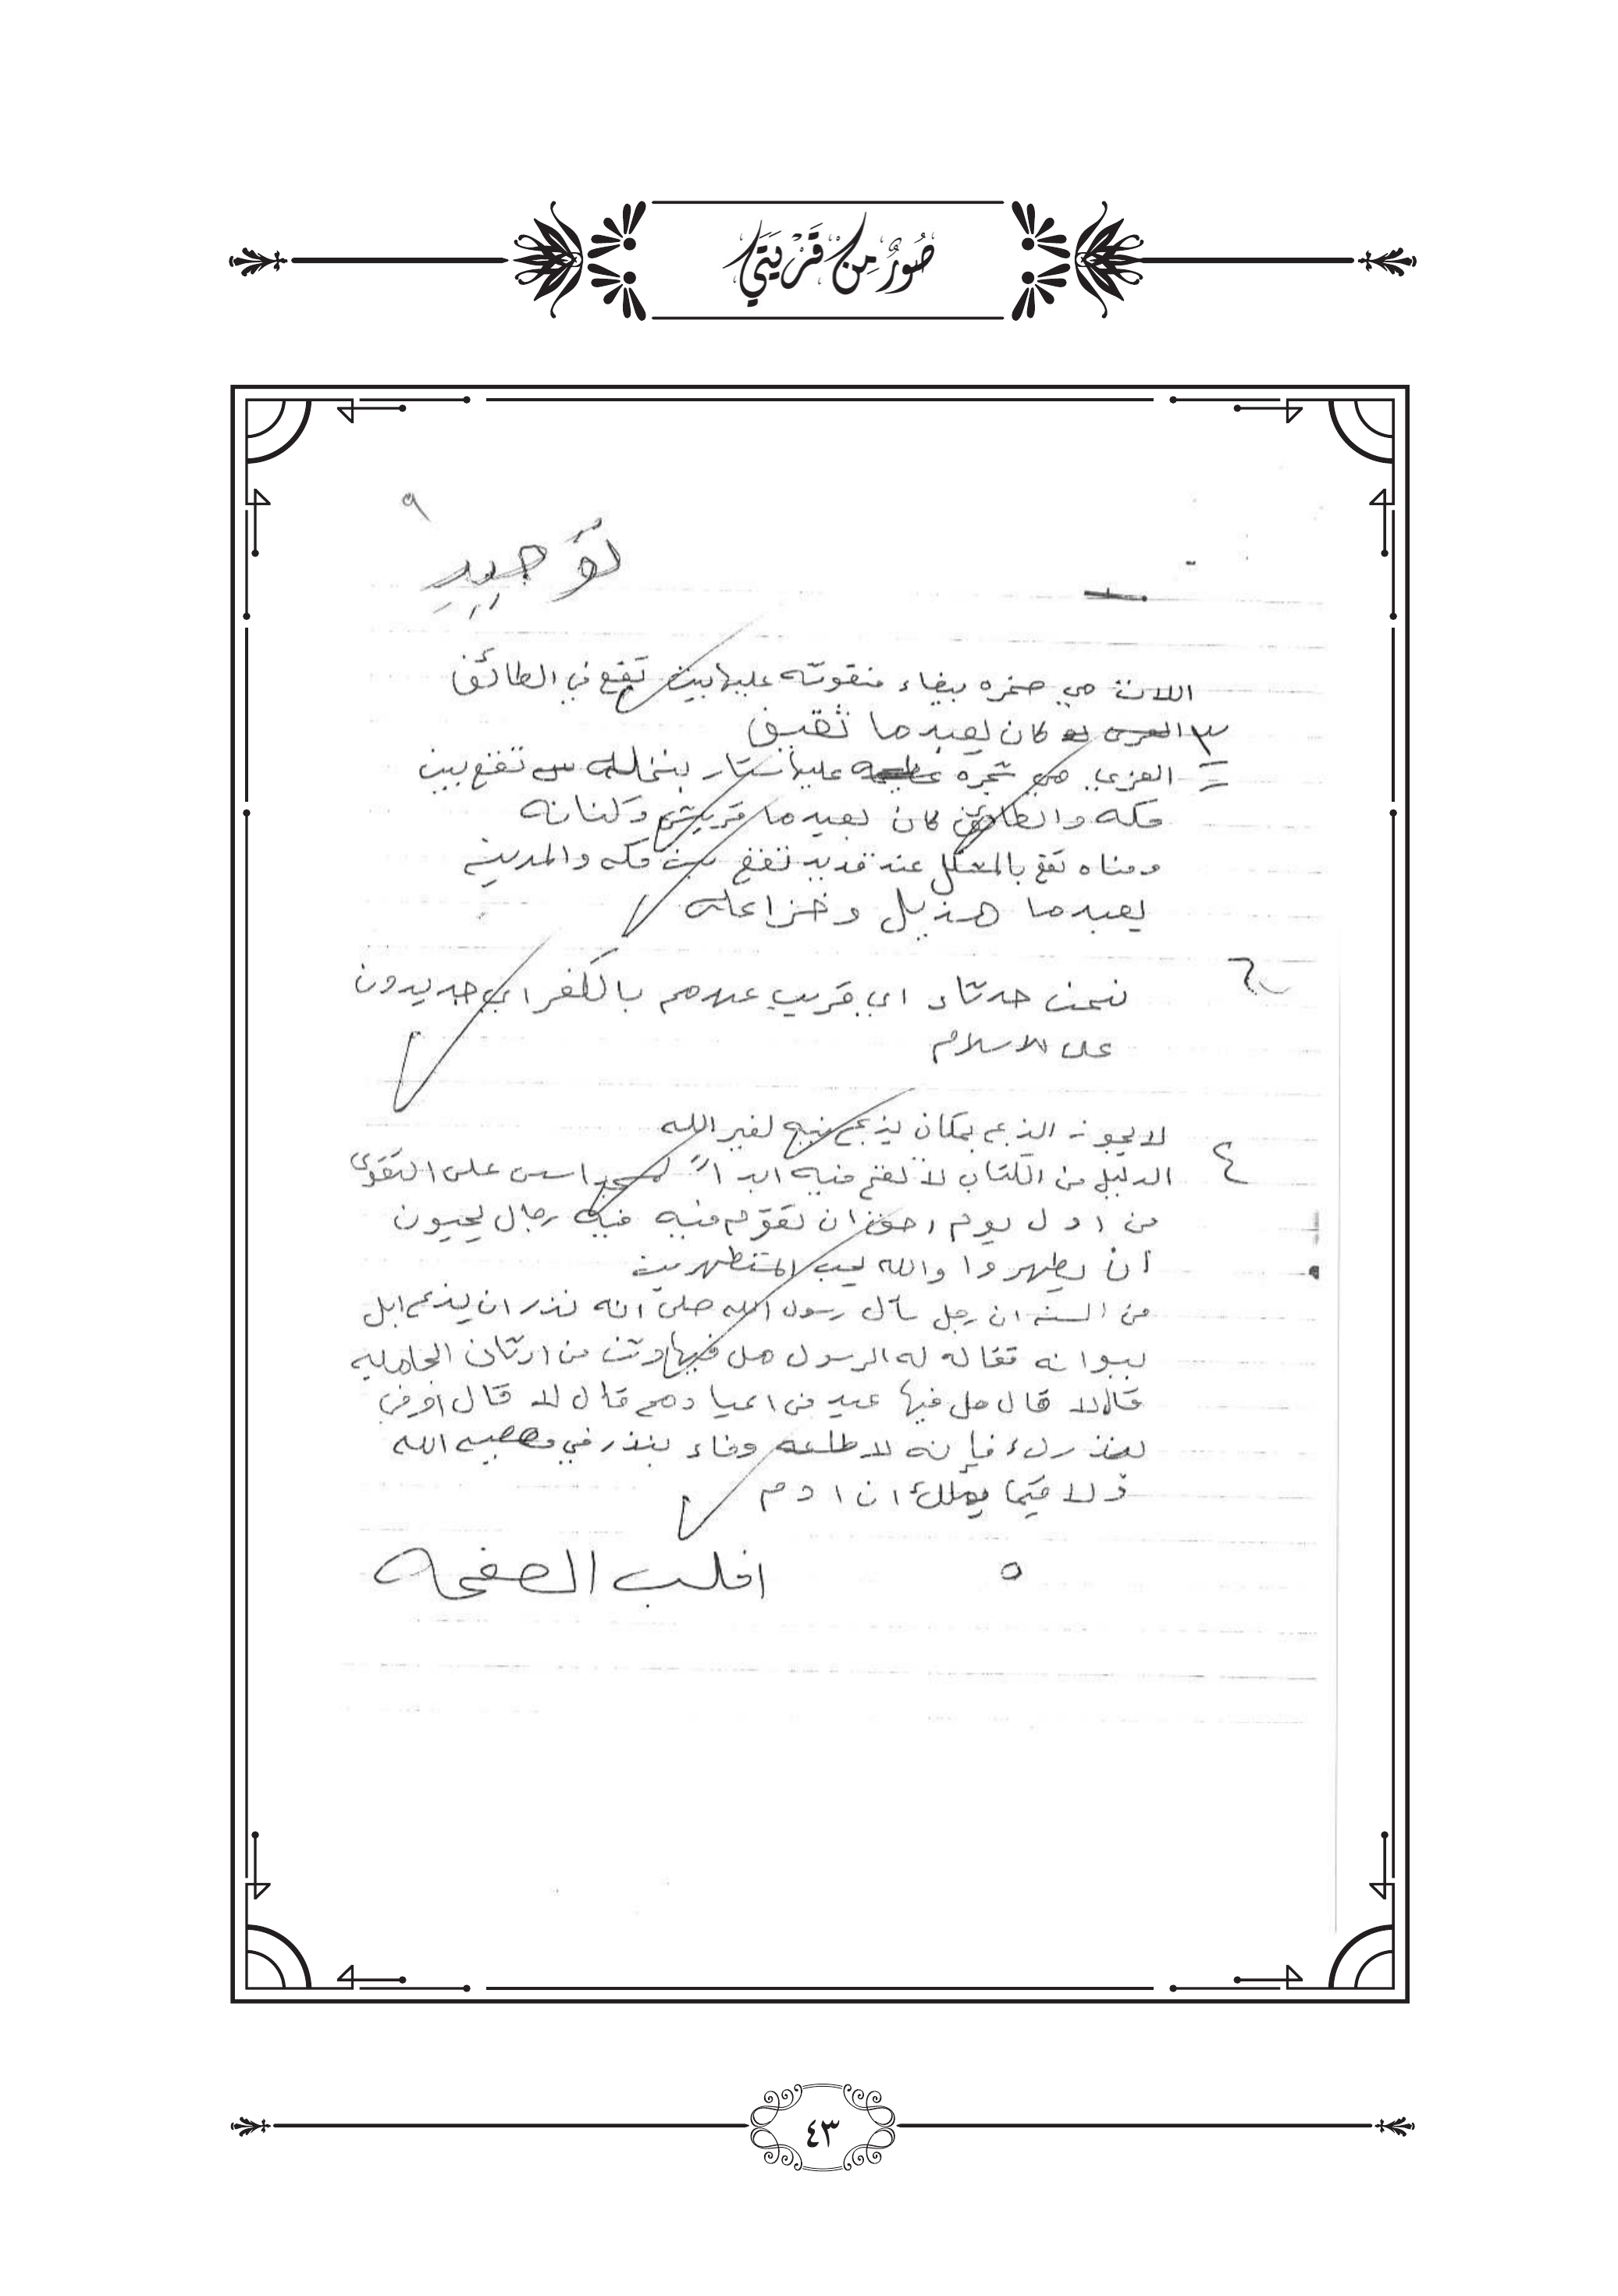 صُوَرٌ مِنْ قَرْيَتِي
٩
توحيد
اللات هي صخره بيضاء منقوته عليها بيت تقع في الطائف
٣ كان يعبدها ثقيف
العزي هي شجره عليها ستار بنخله تقع بين
مكه والطائف كان يعبدها قريش وكنانه
ومناه تقع بالمعلل عند قديد تقع بين مكه والمدينه
يعبدها هذيل وخزاعه
نحن حدثاء اي قريب عهدهم بالكفر اي جديدون
على الاسلام
لا يجوز الذبح بمكان يذبح فيه لغير الله
٤ الدليل من الكتاب لا تقم فيه ابداً لمسجد اسس على التقوى
من اول يوم احق ان تقوم فيه فيه رجال يحبون
أن يطهروا والله يحب المتطهرين
من السنه ان رجل سأل رسول الله صلى انه نذر ان يذبح ابل
ببوانه فقاله له الرسول هل فيها وثن من اوثان الجاهليه
قال لا قال هل فيها عيد من اعيادهم قال لا قال اوفي
بنذرك فإنه لا وفاء بنذر في معصيه الله
ولا فيما يملك ابن ادم
٥ اقلب الصفحه
٤٣